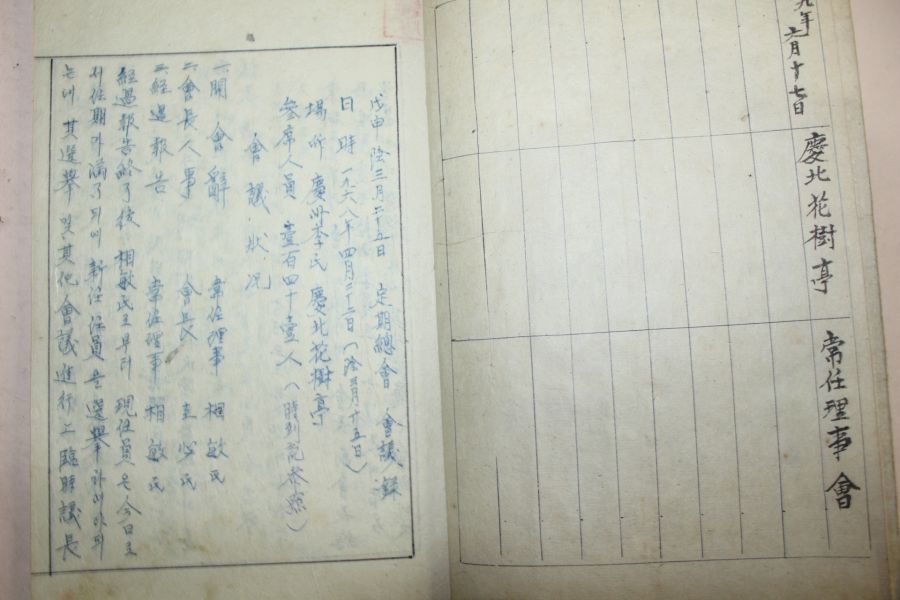 九年 六月十七日 慶北花樹亭 常任理事會
戊申 陰三月二十五日 定期總會 會議錄
日時 一九六八年四月二十二日(陰三月二十五日)
場所 慶州李氏 慶北花樹亭
參席人員 壹百四十壹人(時到記參照)
會議狀況
一 開會辭 常任理事 相敏氏
二 會長人事 會長 氏
三 經過報告 常任理事 相敏氏
經過報告終了後 相敏氏로부터 現任員은 今日로
서 任期가 滿了되여 新任 任員을 選擧하여야 되
는데 其選擧 및 其他 會議進行上 臨時議長